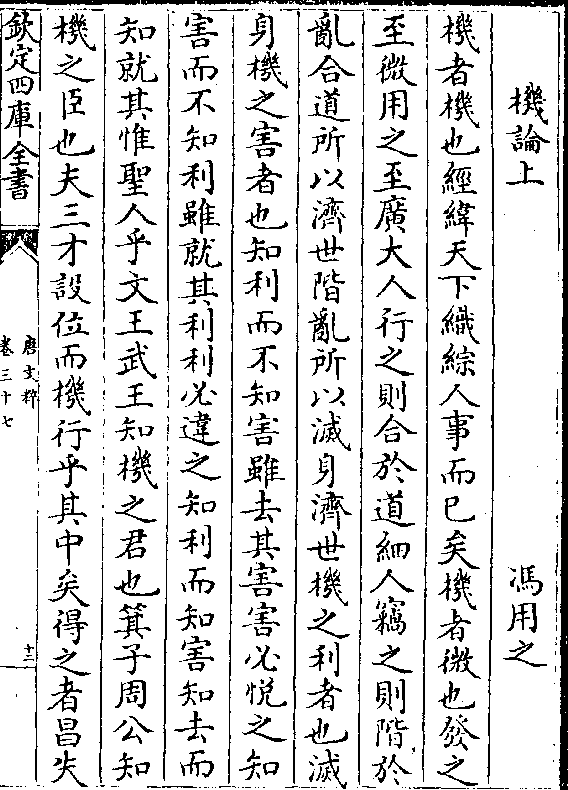 機論上 馮用之
機者機也經緯天下織綜人事而已矣機者微也發之
至微用之至廣大人行之則合於道細人竊之則階於
亂合道所以濟世階亂所以滅身濟世機之利者也滅
身機之害者也知利而不知害雖去其害害必悅之知
害而不知利雖就其利利必違之知利而知害知去而
知就其惟聖人乎文王武王知機之君也箕子周公知
機之臣也夫三才設位而機行乎其中矣得之者昌失
欽定四庫全書
唐文粹
卷三十七
十三